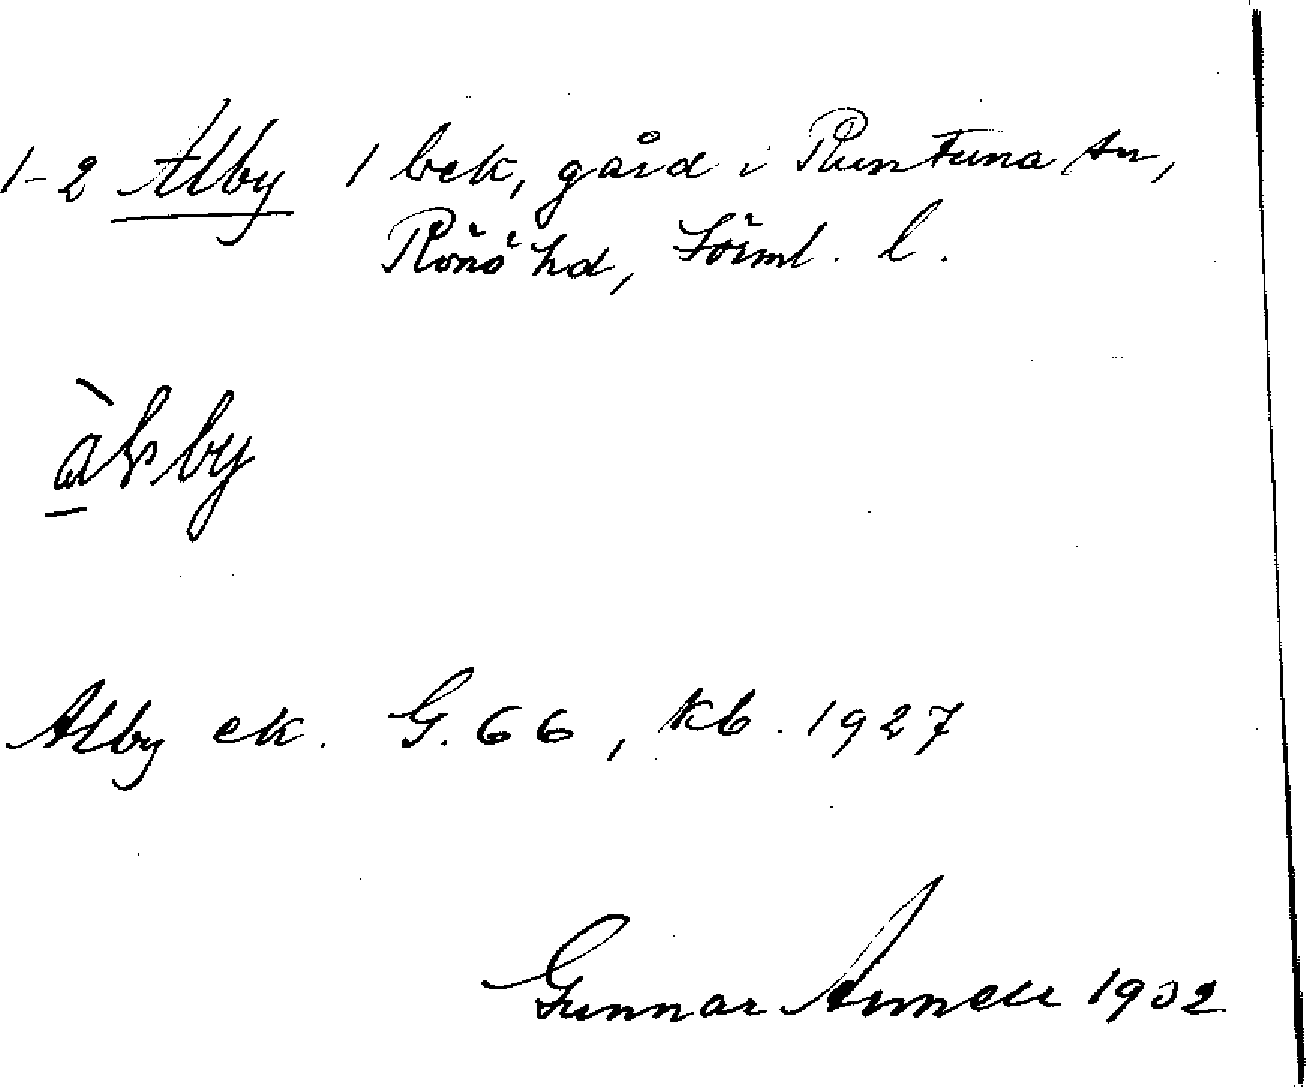 1-2 Alby 1 bek, gård i Runtuna sn,
Rönö hd, Sörml. l.
Alby ek. G. 66, kb. 1927
Gunnar 1932